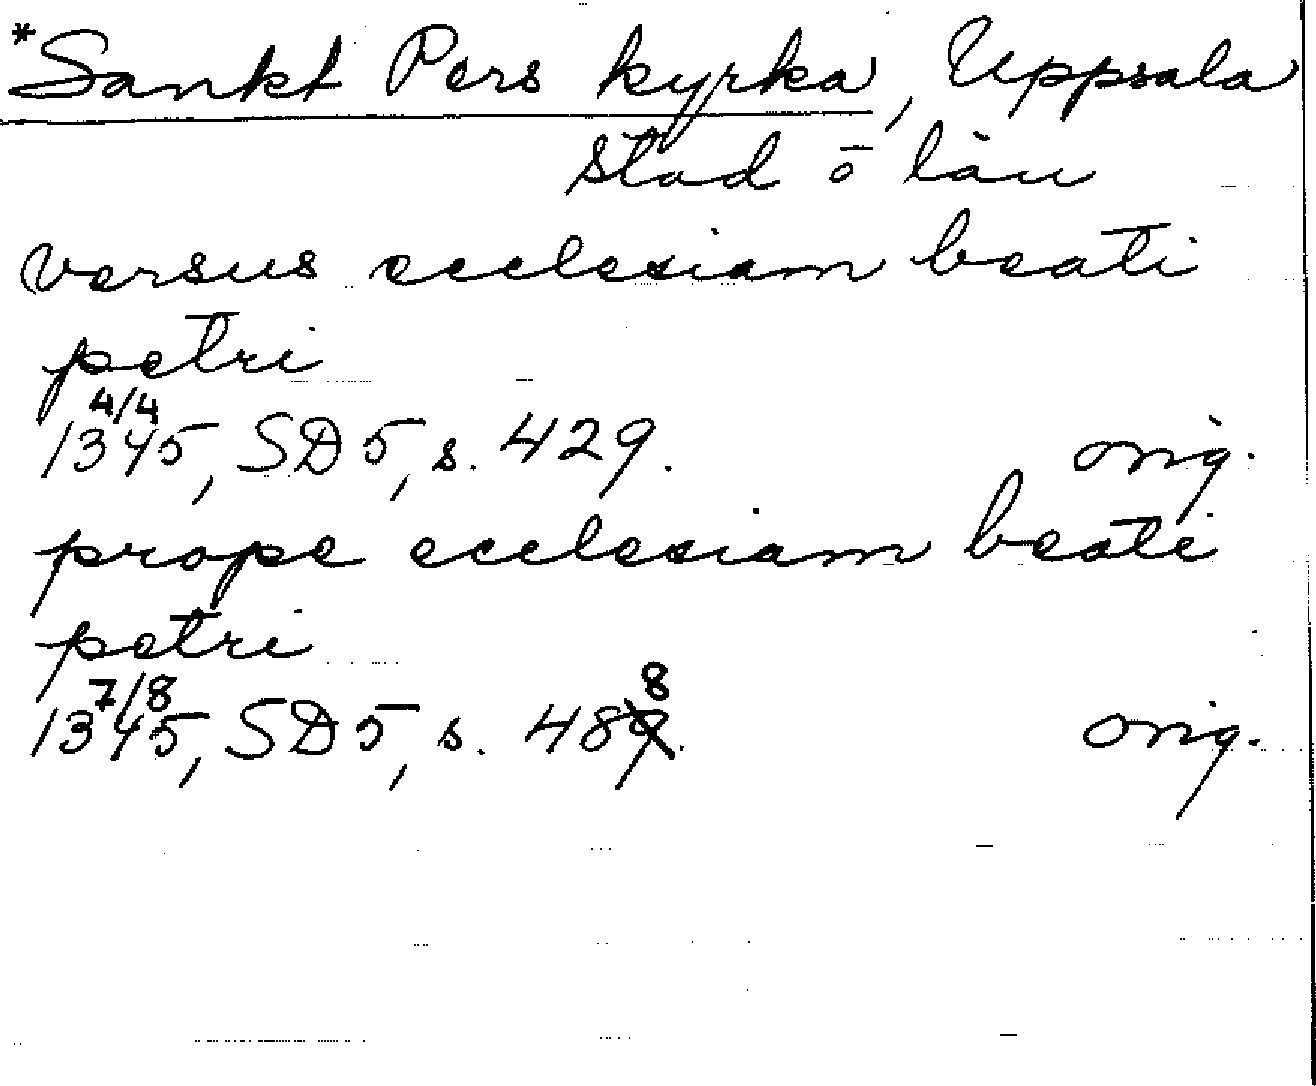 *Sankt Pers kyrka, Uppsala
stad ō län
versus ecclesiam beati
petri
4/4
1345, SD 5, s. 429. orig.
prope ecclesiam beati
petri
7/8 8
1345, SD 5, s. 489. orig.